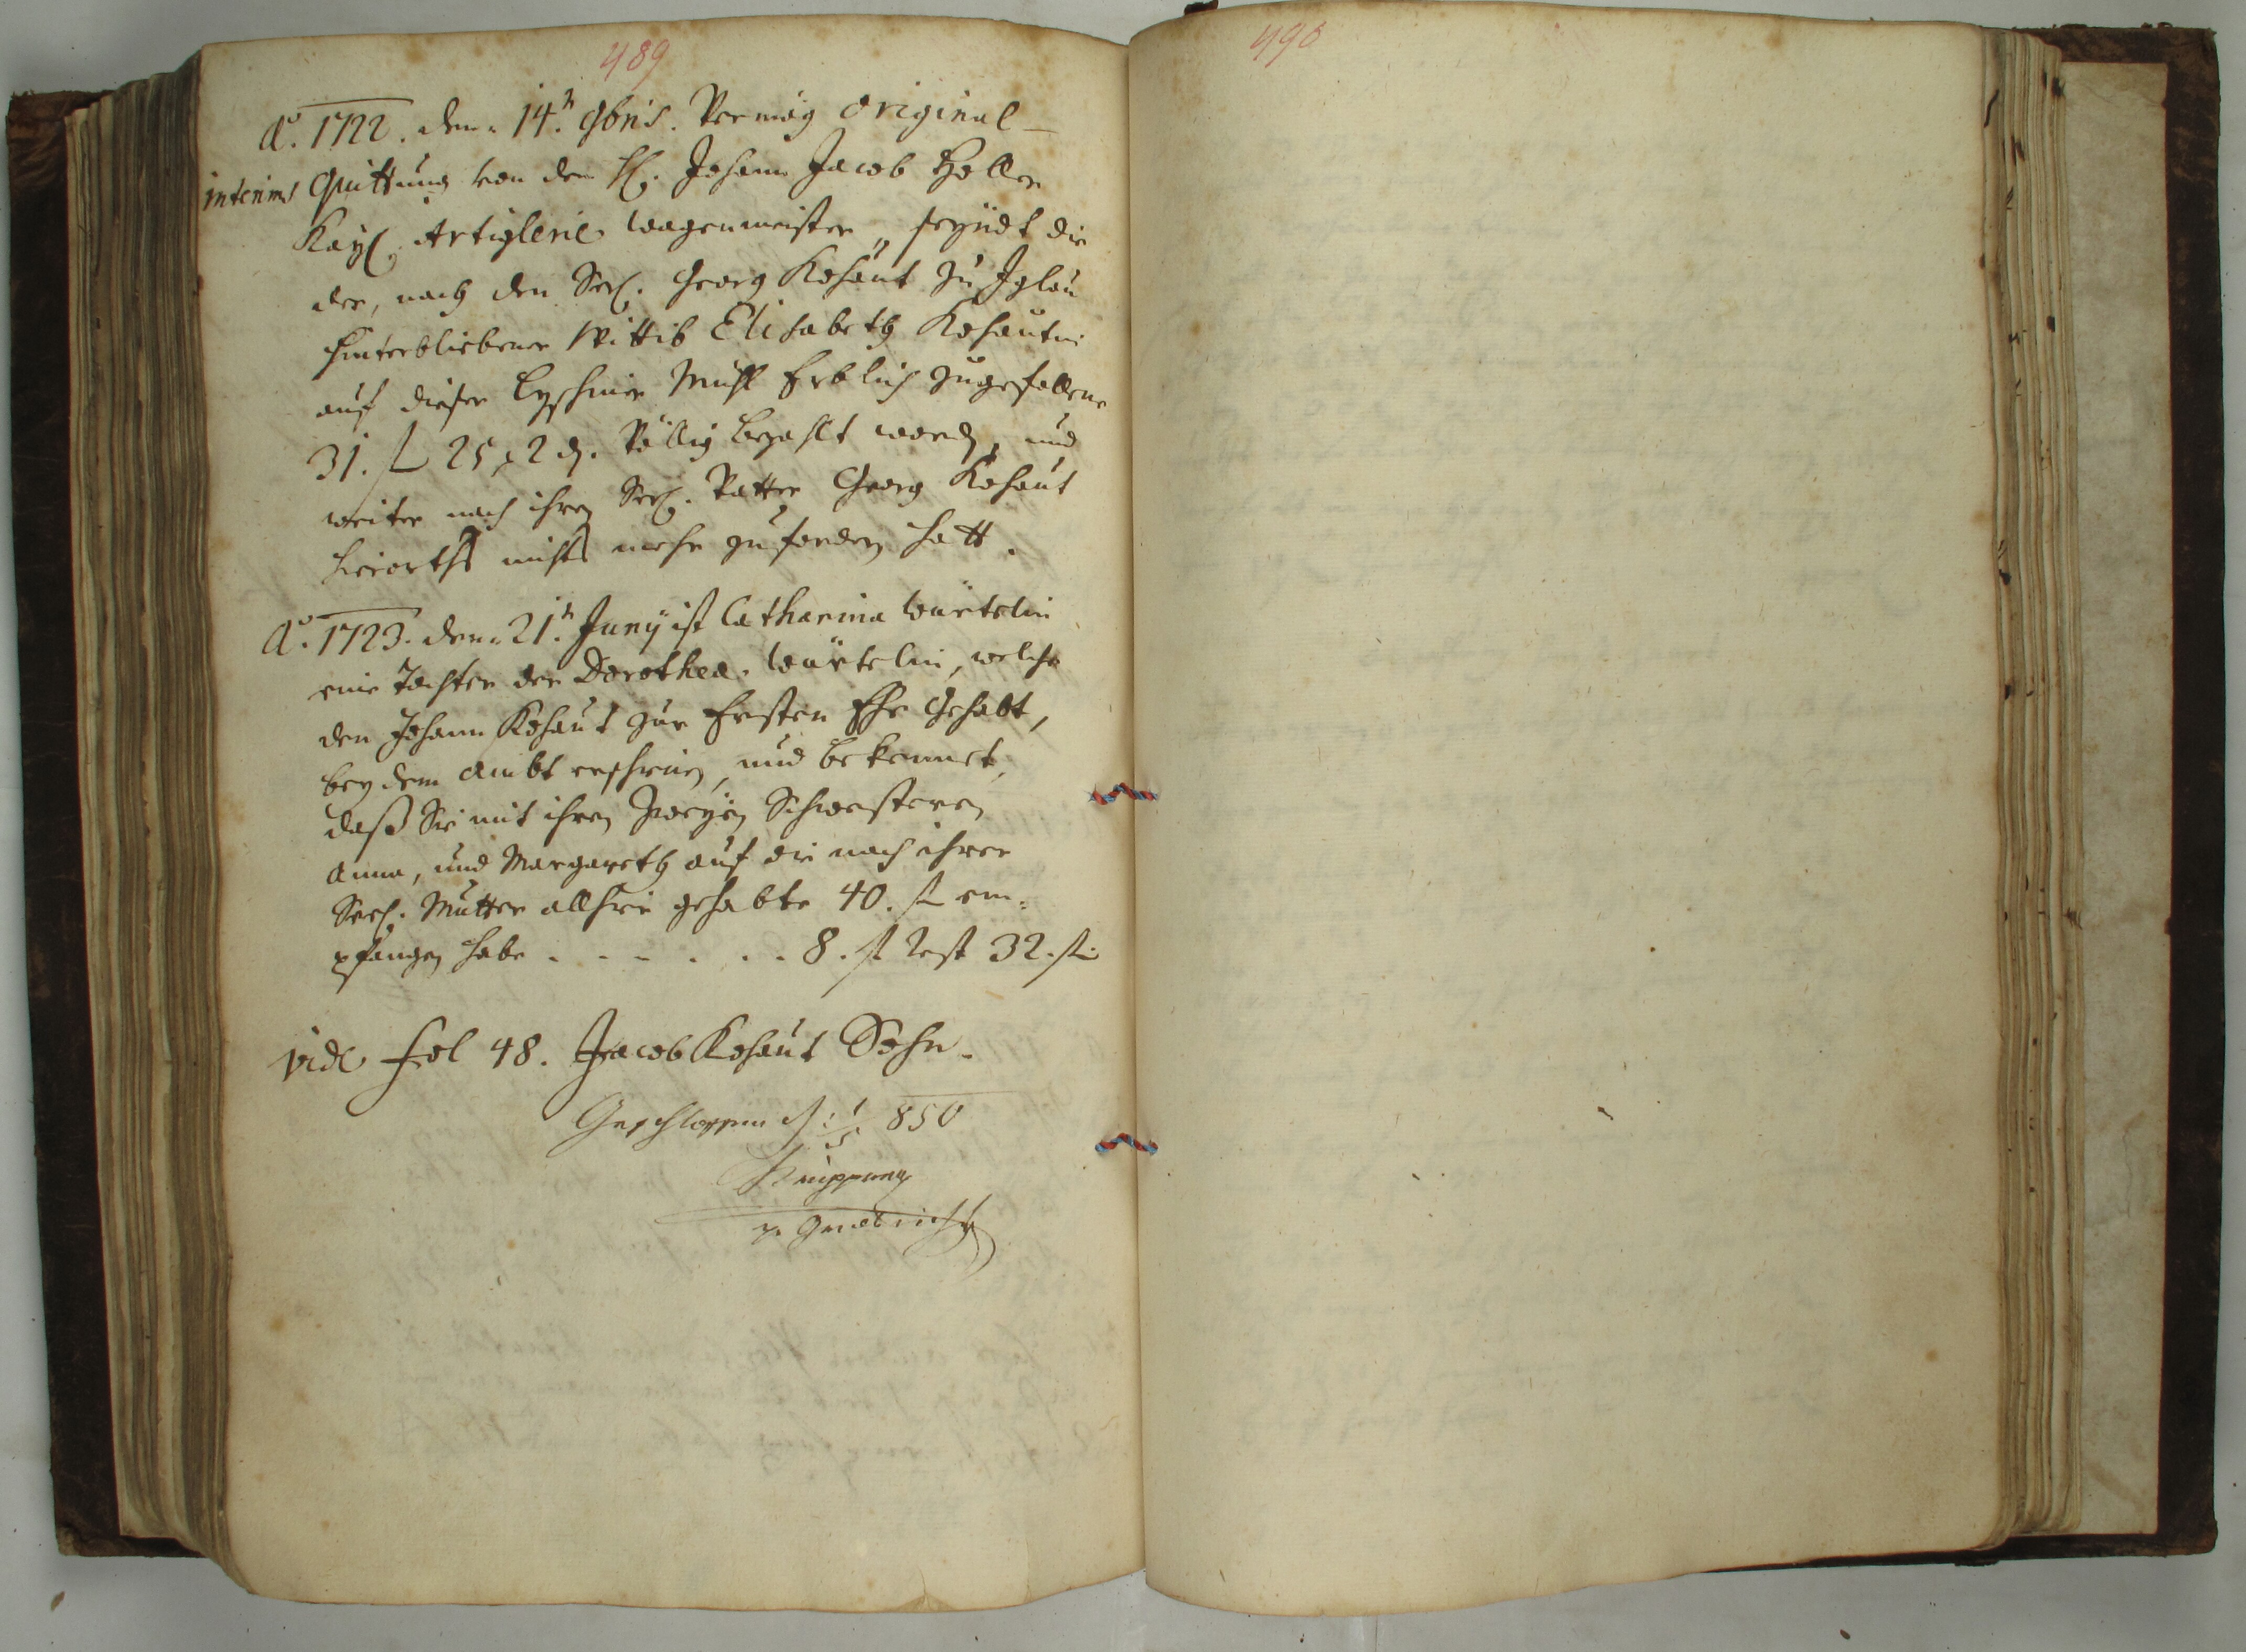 489
490
Ao. 1722. den 14n. 9bris. Vermög Original-
interims Quittung von dem H. Johann Jacob Holler
Kayl. Artiglerie wagenmeister, seyndt die
der, nach den Seel. Georg Kohaut zu Iglau
hinterbliebener Wittib Elisabeth Kohautin
auf dieser Mühl Erblich zugefallene
31. fl 25 x 2 d. Völlig bezahlt word, und
weiter nach ihren Seel. Vatter Georg Kohaut
hierorths nichts mehr zu fordern hatt.
Ao. 1723. den 21n. Juny ist Catharina Würtelin
eine Tochter der Dorothea Würtelin, welche
den Johann Kohaut zur Ersten Ehe gehabt,
bey dem Ambt erschienen, und bekennet,
daß Sie mit ihren Zweyen Schwesteren
Anna, und Margareth auf die nach ihrer
Seel. Mutter allhier gehabte 40. fl em-
pfangen habe . - - . . . 8. fl Rest 32. fl.
vide Fol 48. Jacob Kohaut Sohn.
Geschlossen 850